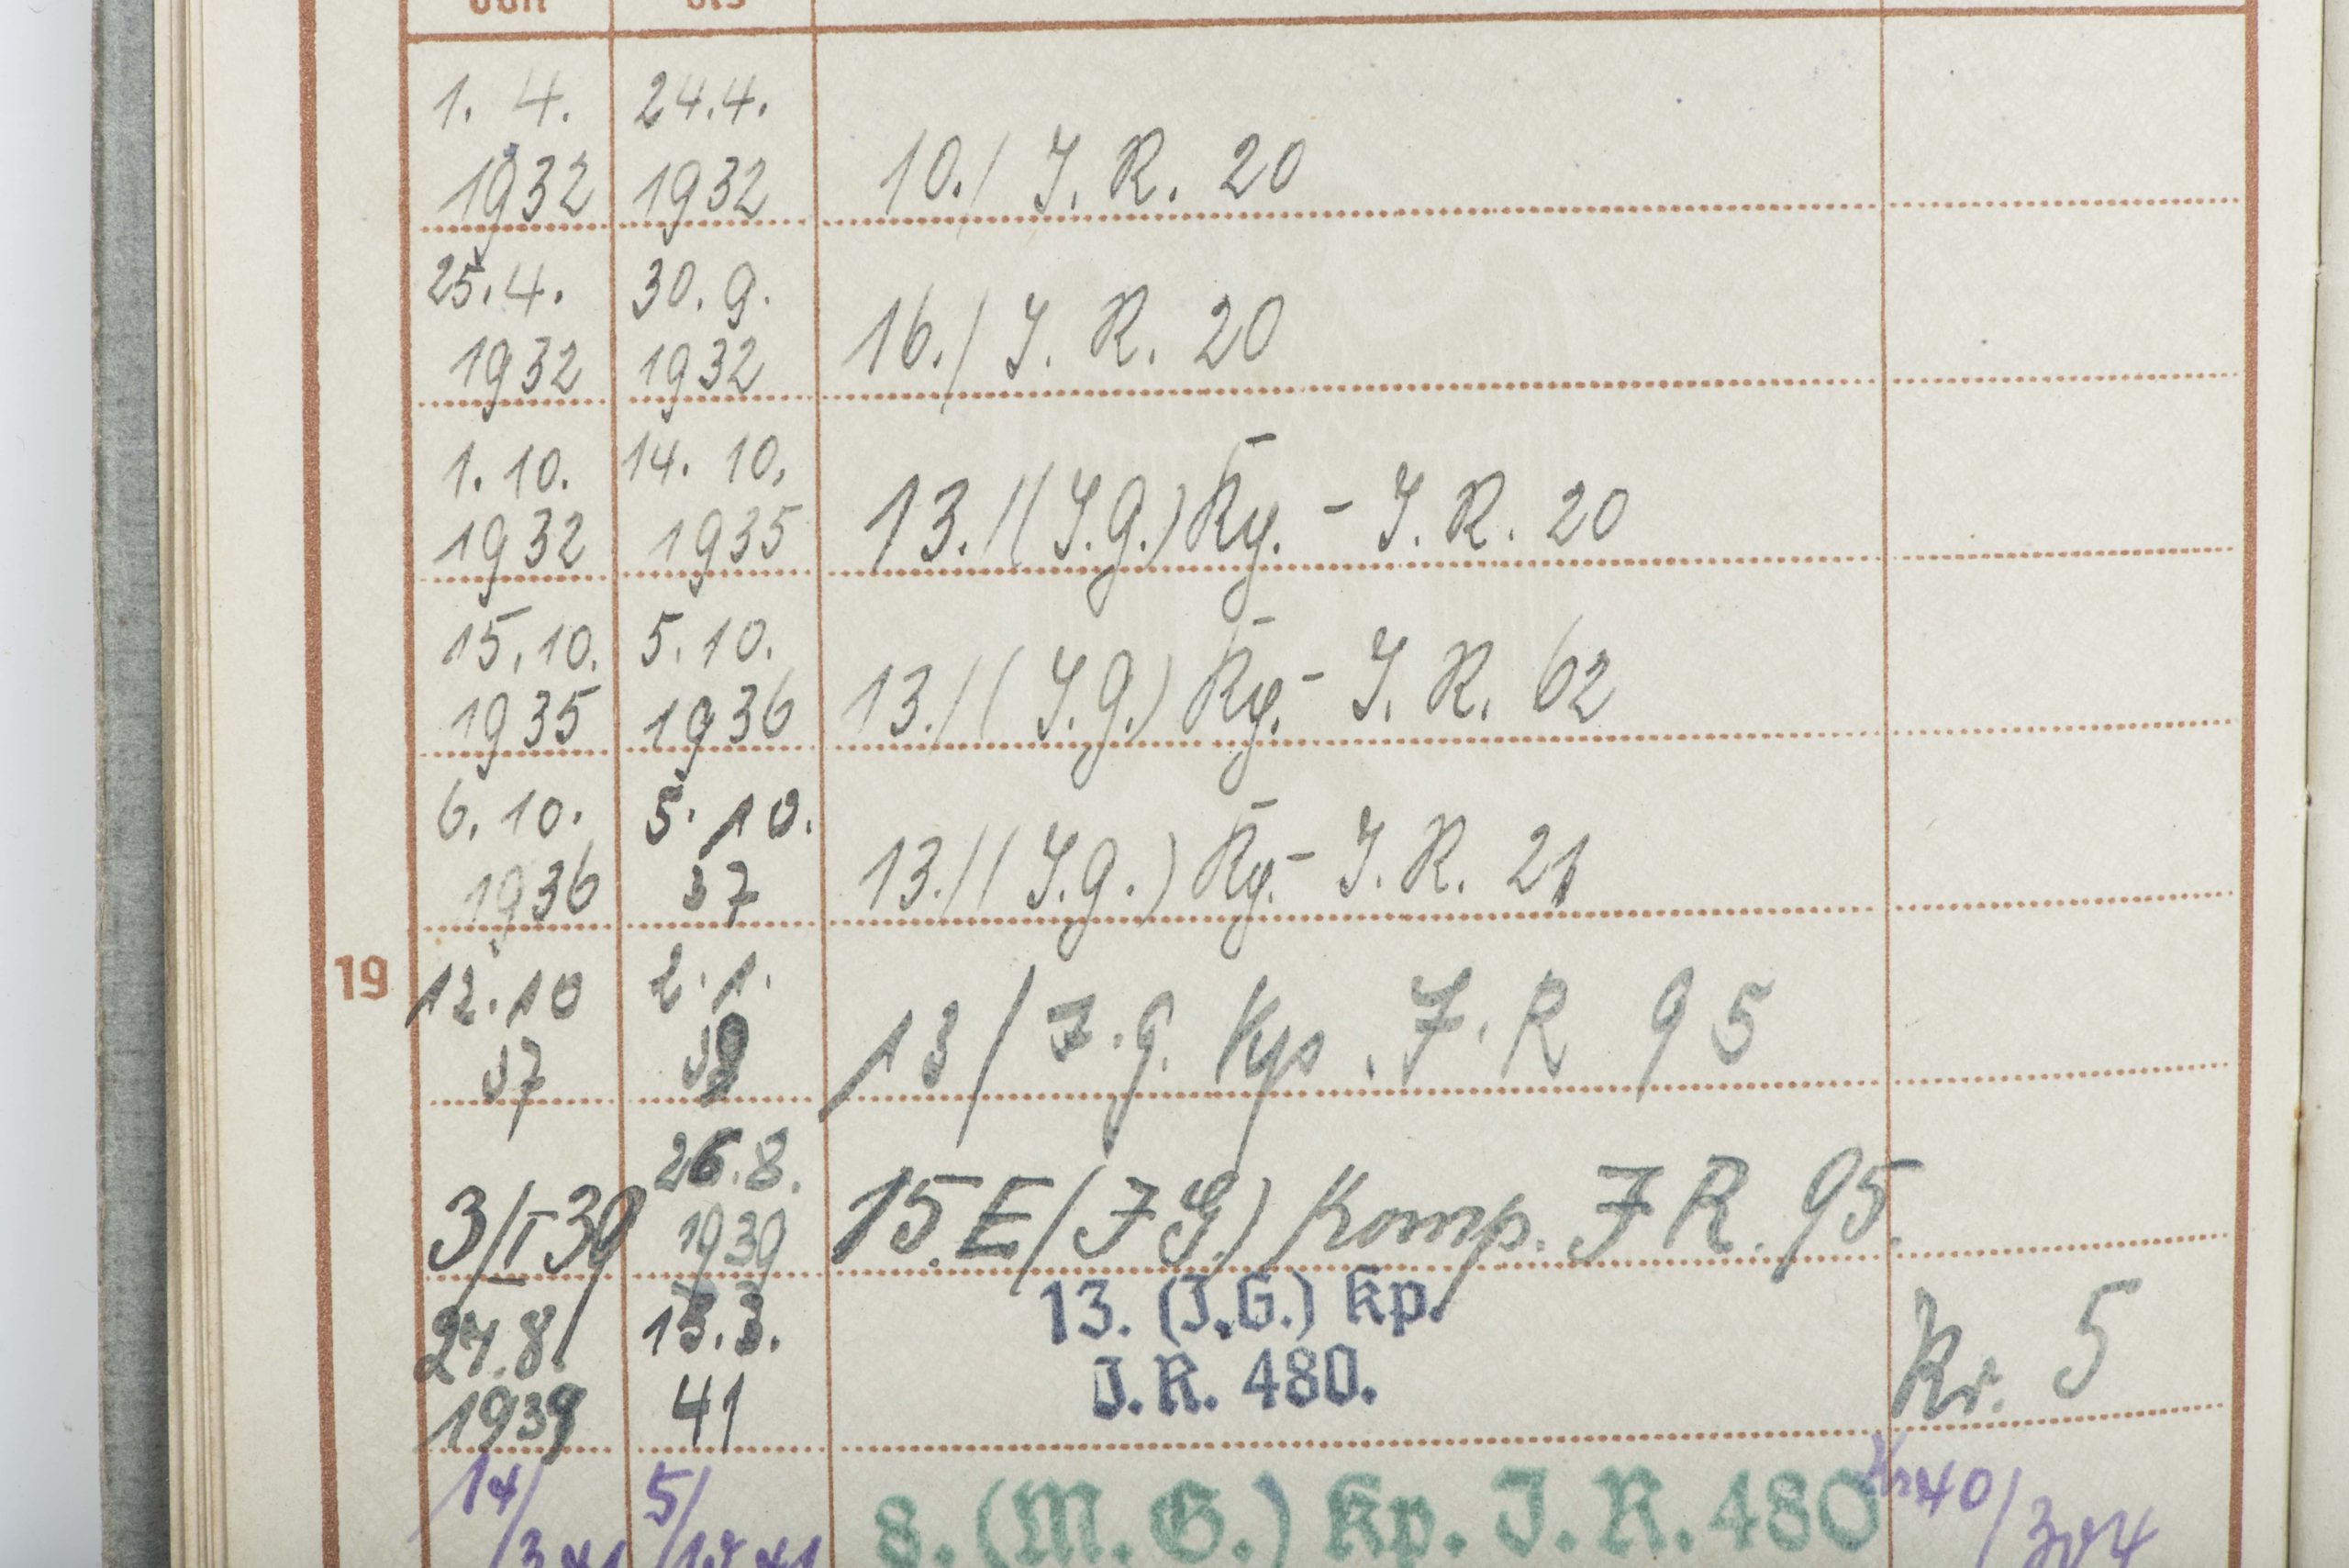 von bis
1. 4. 24.4.
1932 1932 10./ J. R. 20
25.4. 30.9.
1932 1932 16./ J. R. 20
1.10. 14. 10.
1932 1935 13./(J.G.) Kp. - J. R. 20
15.10. 5.10.
1935 1936 13./(J.G.) Kp. - J. R. 62
6.10. 5.10.
1936 37 13./(J.G.) Kp. - J. R. 21
19 12.10 2.1.
37 13/J.G. Kp. J.R 95
26.8.
3/I 39 1939 15.E/(JG.) Komp. JR. 95.
27.8. 13.3. 13. (J.G.) Kp.
1939 41 J.R. 480. Kr. 5
14/ 5/ 8. (M.G.) Kp. J.R. 480 40/